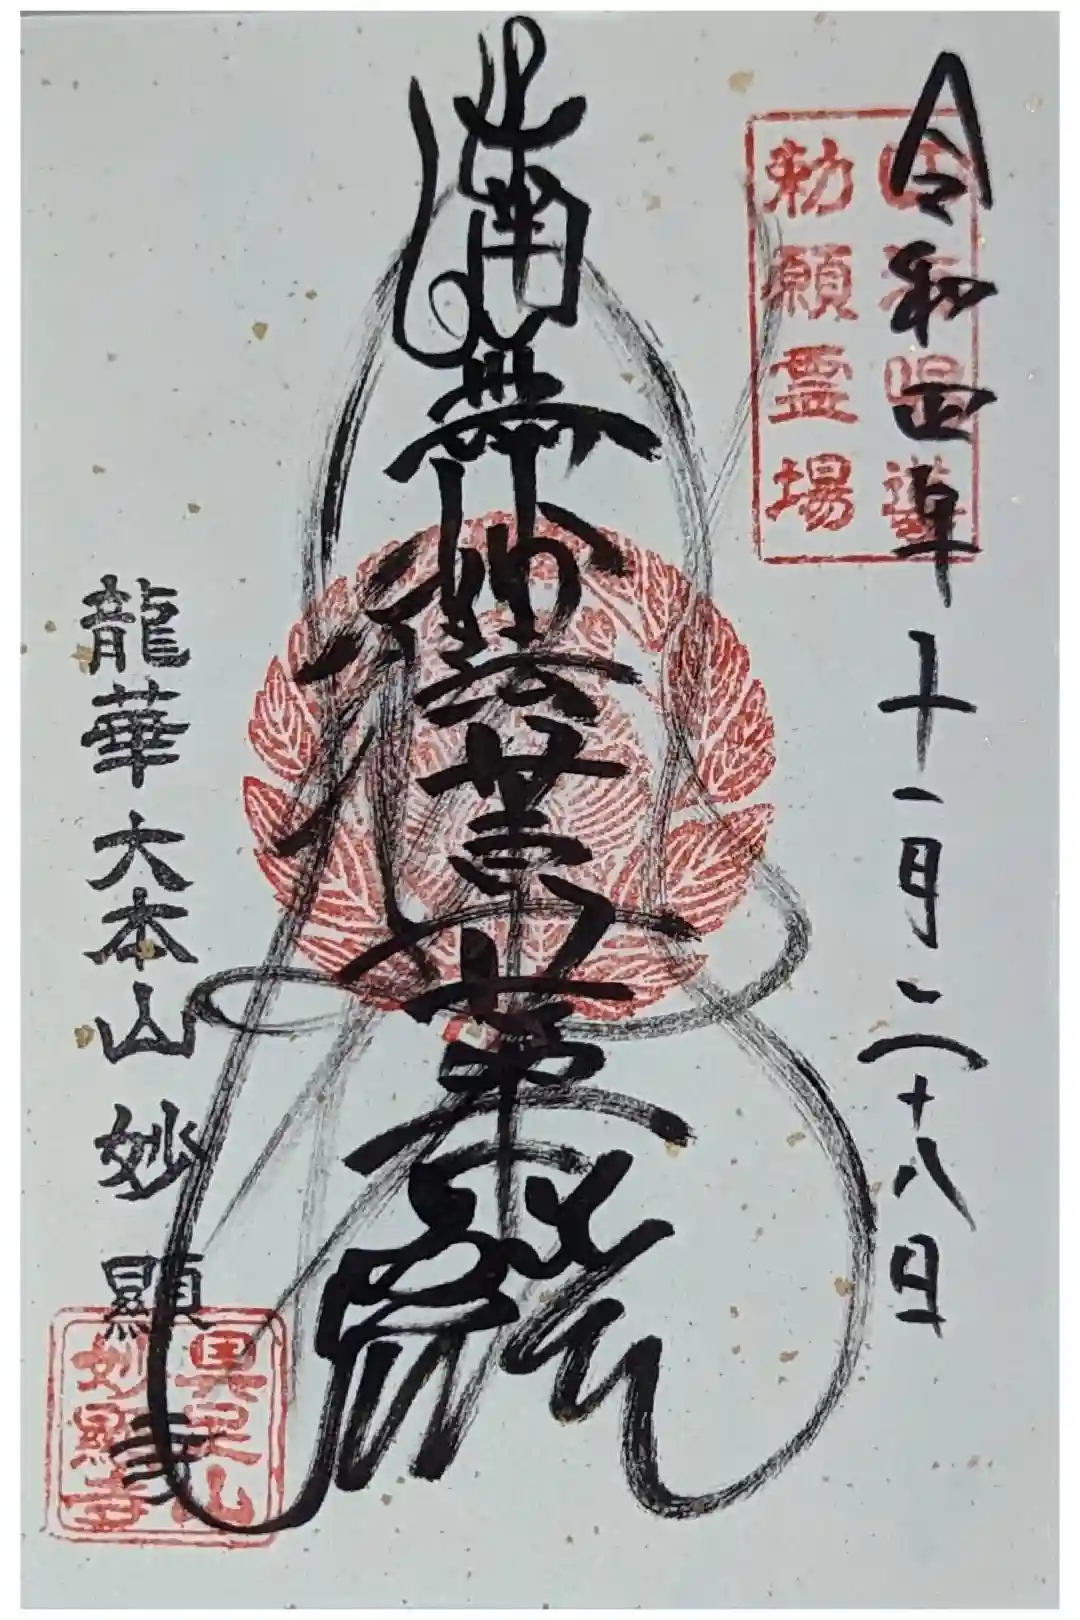 令和四年十一月二十八日
勅願霊場
南無妙法蓮華経
龍華大本山 妙顯寺
具足山
妙顯寺